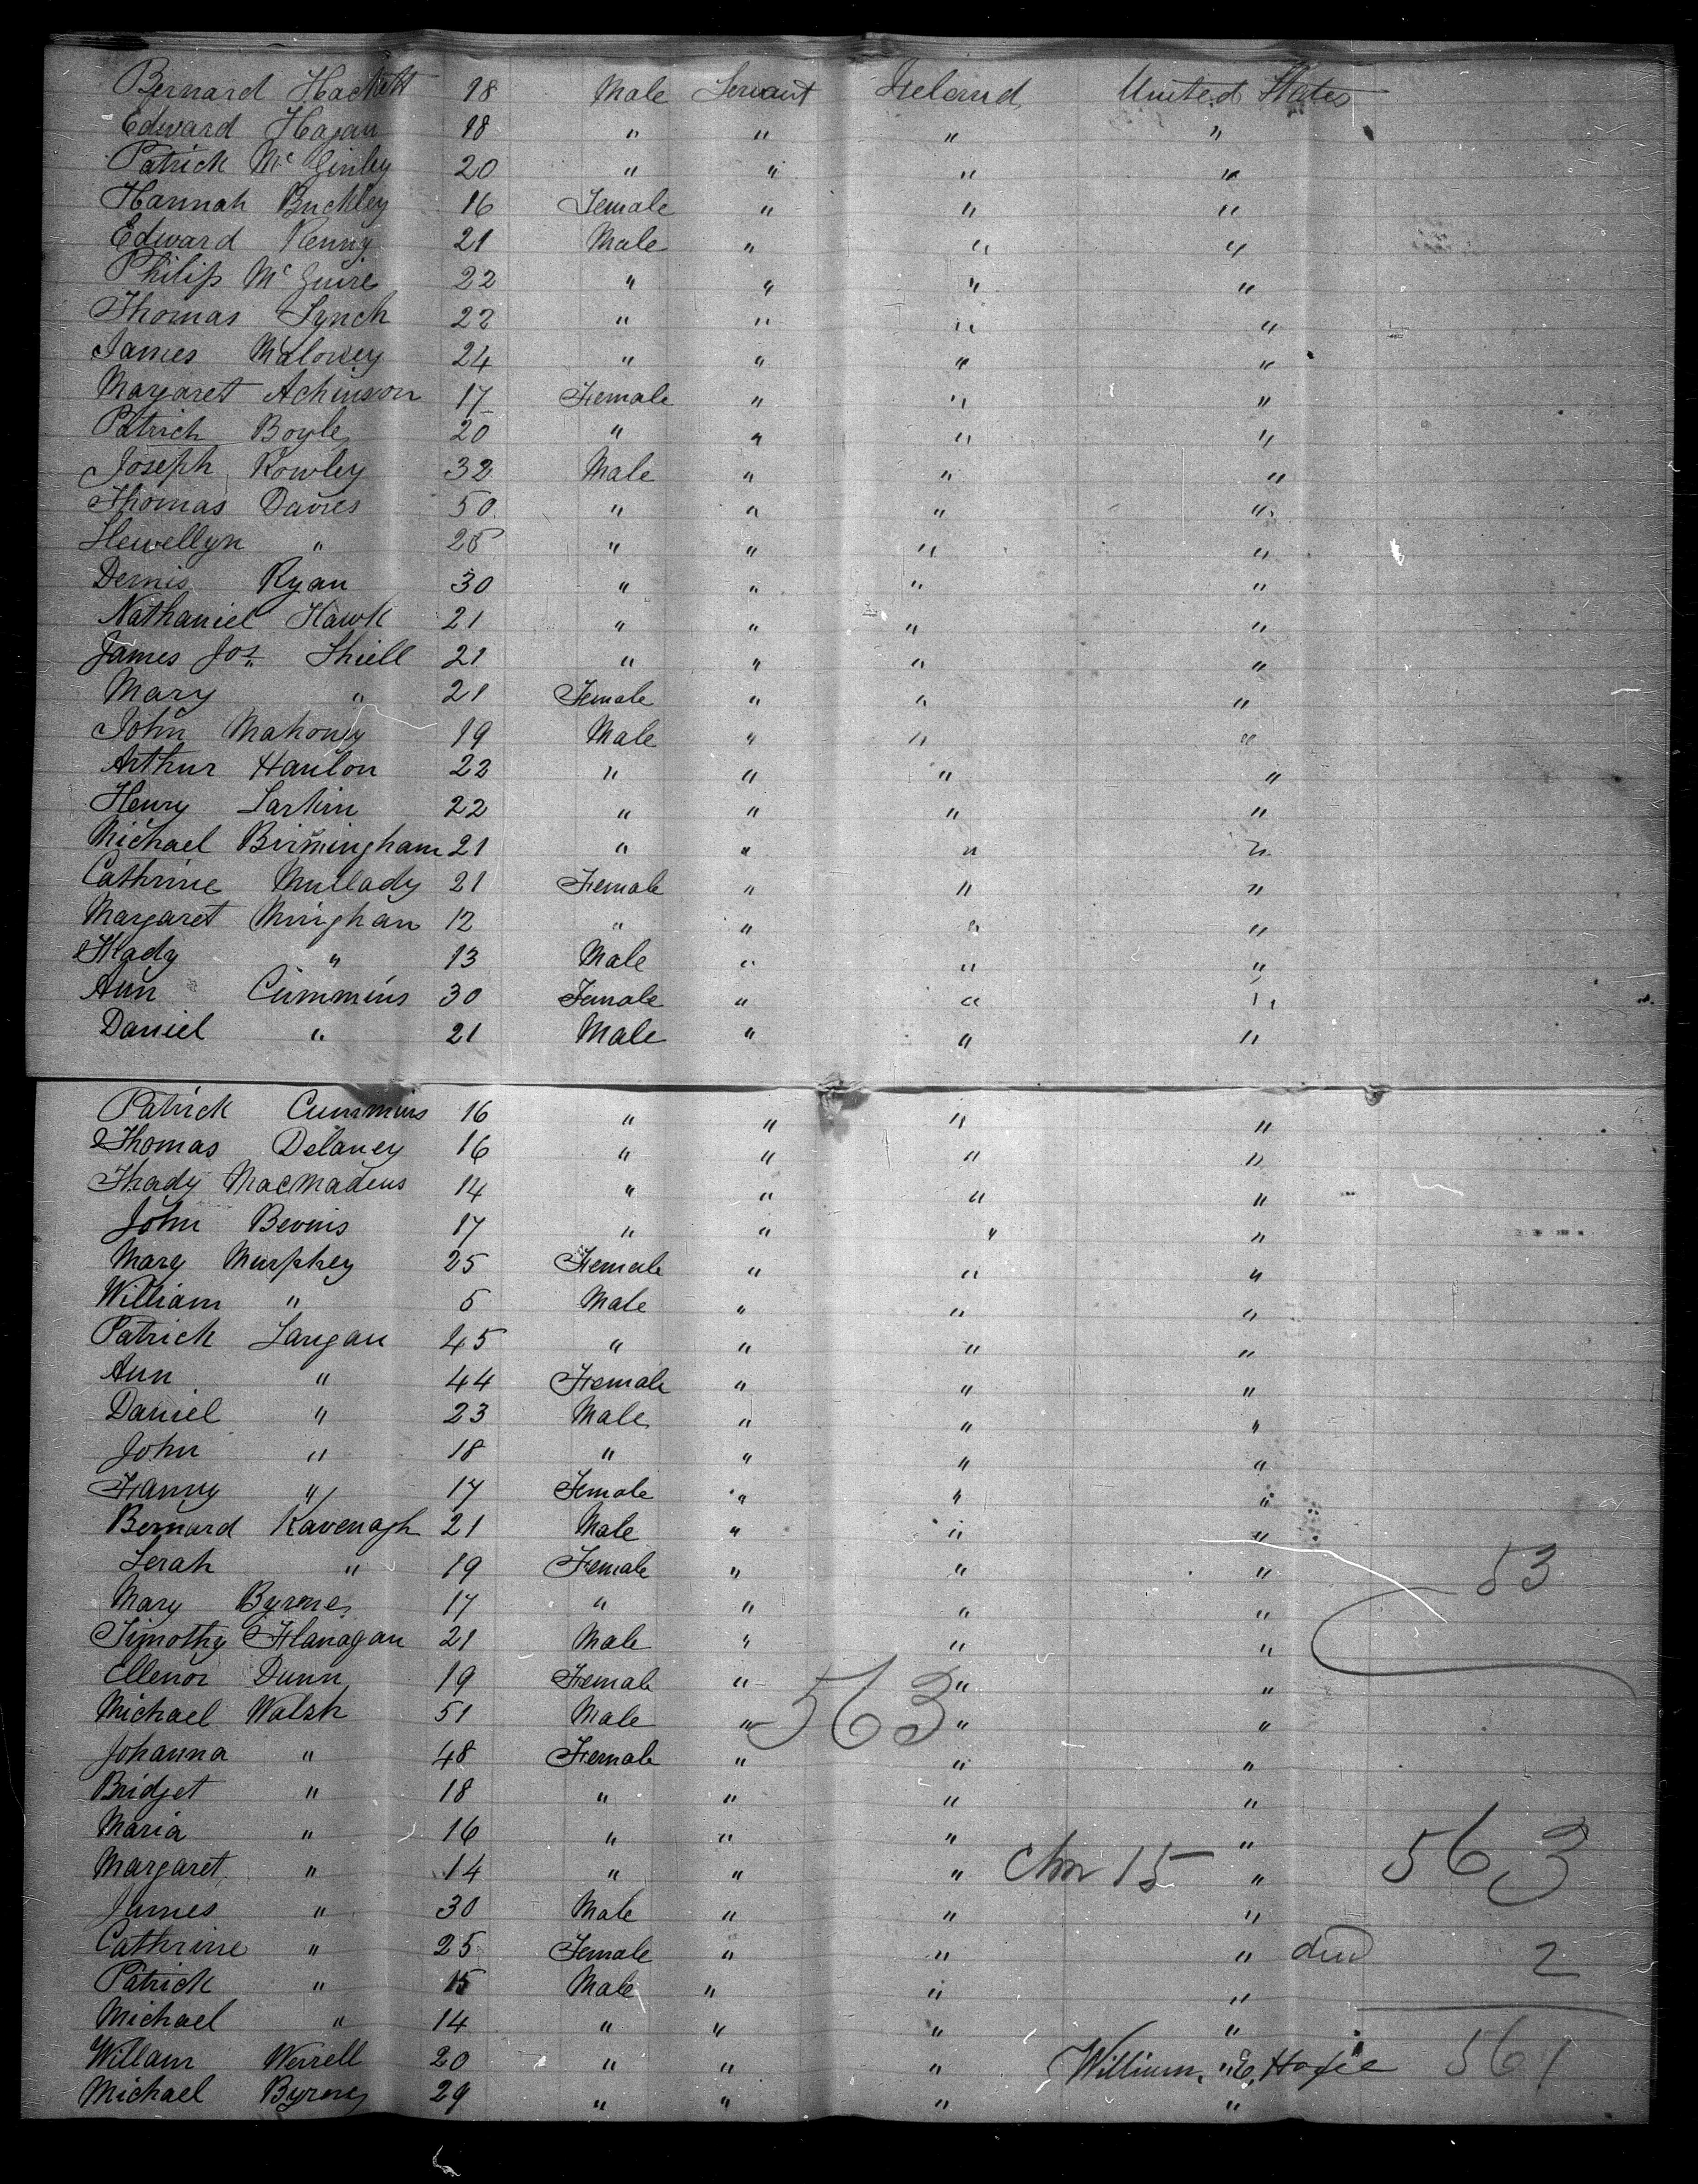 Bernard Hackett 18 Male Servant Ireland United States
Edward Hagan 18 " " " "
Patrick Mc Ginley 20 " " " "
Hannah Buckley 16 Female " " "
Edward Kenny 21 Male " " "
Philip Mc Guire 22 " " " "
Thomas Lynch 22 " " " "
James Maloney 24 " " " "
Margaret Achinson 17 Female " " "
Patrick Boyle 20 " " " "
Joseph Rowley 32 Male " " "
Thomas Davies 50 " " " "
Llewellyn " 25 " " " "
Dennis Ryan 30 " " " "
Nathaniel Hawk 21 " " " "
James Jos. Shiell 21 " " " "
Mary " 21 Female " " "
John Mahony 19 Male " " "
Arthur Hanlon 22 " " " "
Henry Larkin 22 " " " "
Michael Birmingham 21 " " " "
Cathrine Mullady 21 Female " " "
Margaret Minghan 12 " " " "
Thady " 13 Male " " "
Ann Cummins 30 Female " " "
Daniel " 21 Male " " "
Patrick Cummins 16 " " " "
Thomas Delaney 16 " " " "
Thady MacMadens 14 " " " "
John Bevins 17 " " " "
Mary Murphey 25 Female " " "
William " 5 Male " " "
Patrick Langan 45 " " " "
Ann " 44 Female " " "
Daniel " 23 Male " " "
John " 18 " " " "
Fanny " 17 Female " " "
Bernard Kavenagh 21 Male " " "
Serah " 19 Female " " " 53
Mary Byrne 17 " " " "
Timothy Flanagan 21 Male " " "
Ellenor Dunn 19 Female " " "
Michael Walsh 51 Male " 563 " "
Johanna " 48 Female " " "
Bridget " 18 " " " "
Maria " 16 " " " " 563
Margaret " 14 " " " 15 "
James " 30 Male " " "
Cathrine " 25 Female " " " died 2
Patrick " 15 Male " " "
Michael " 14 " " " "
Willam Werrell 20 " " " William E. Hoxie 561
Michael Byrne 29 " " " "